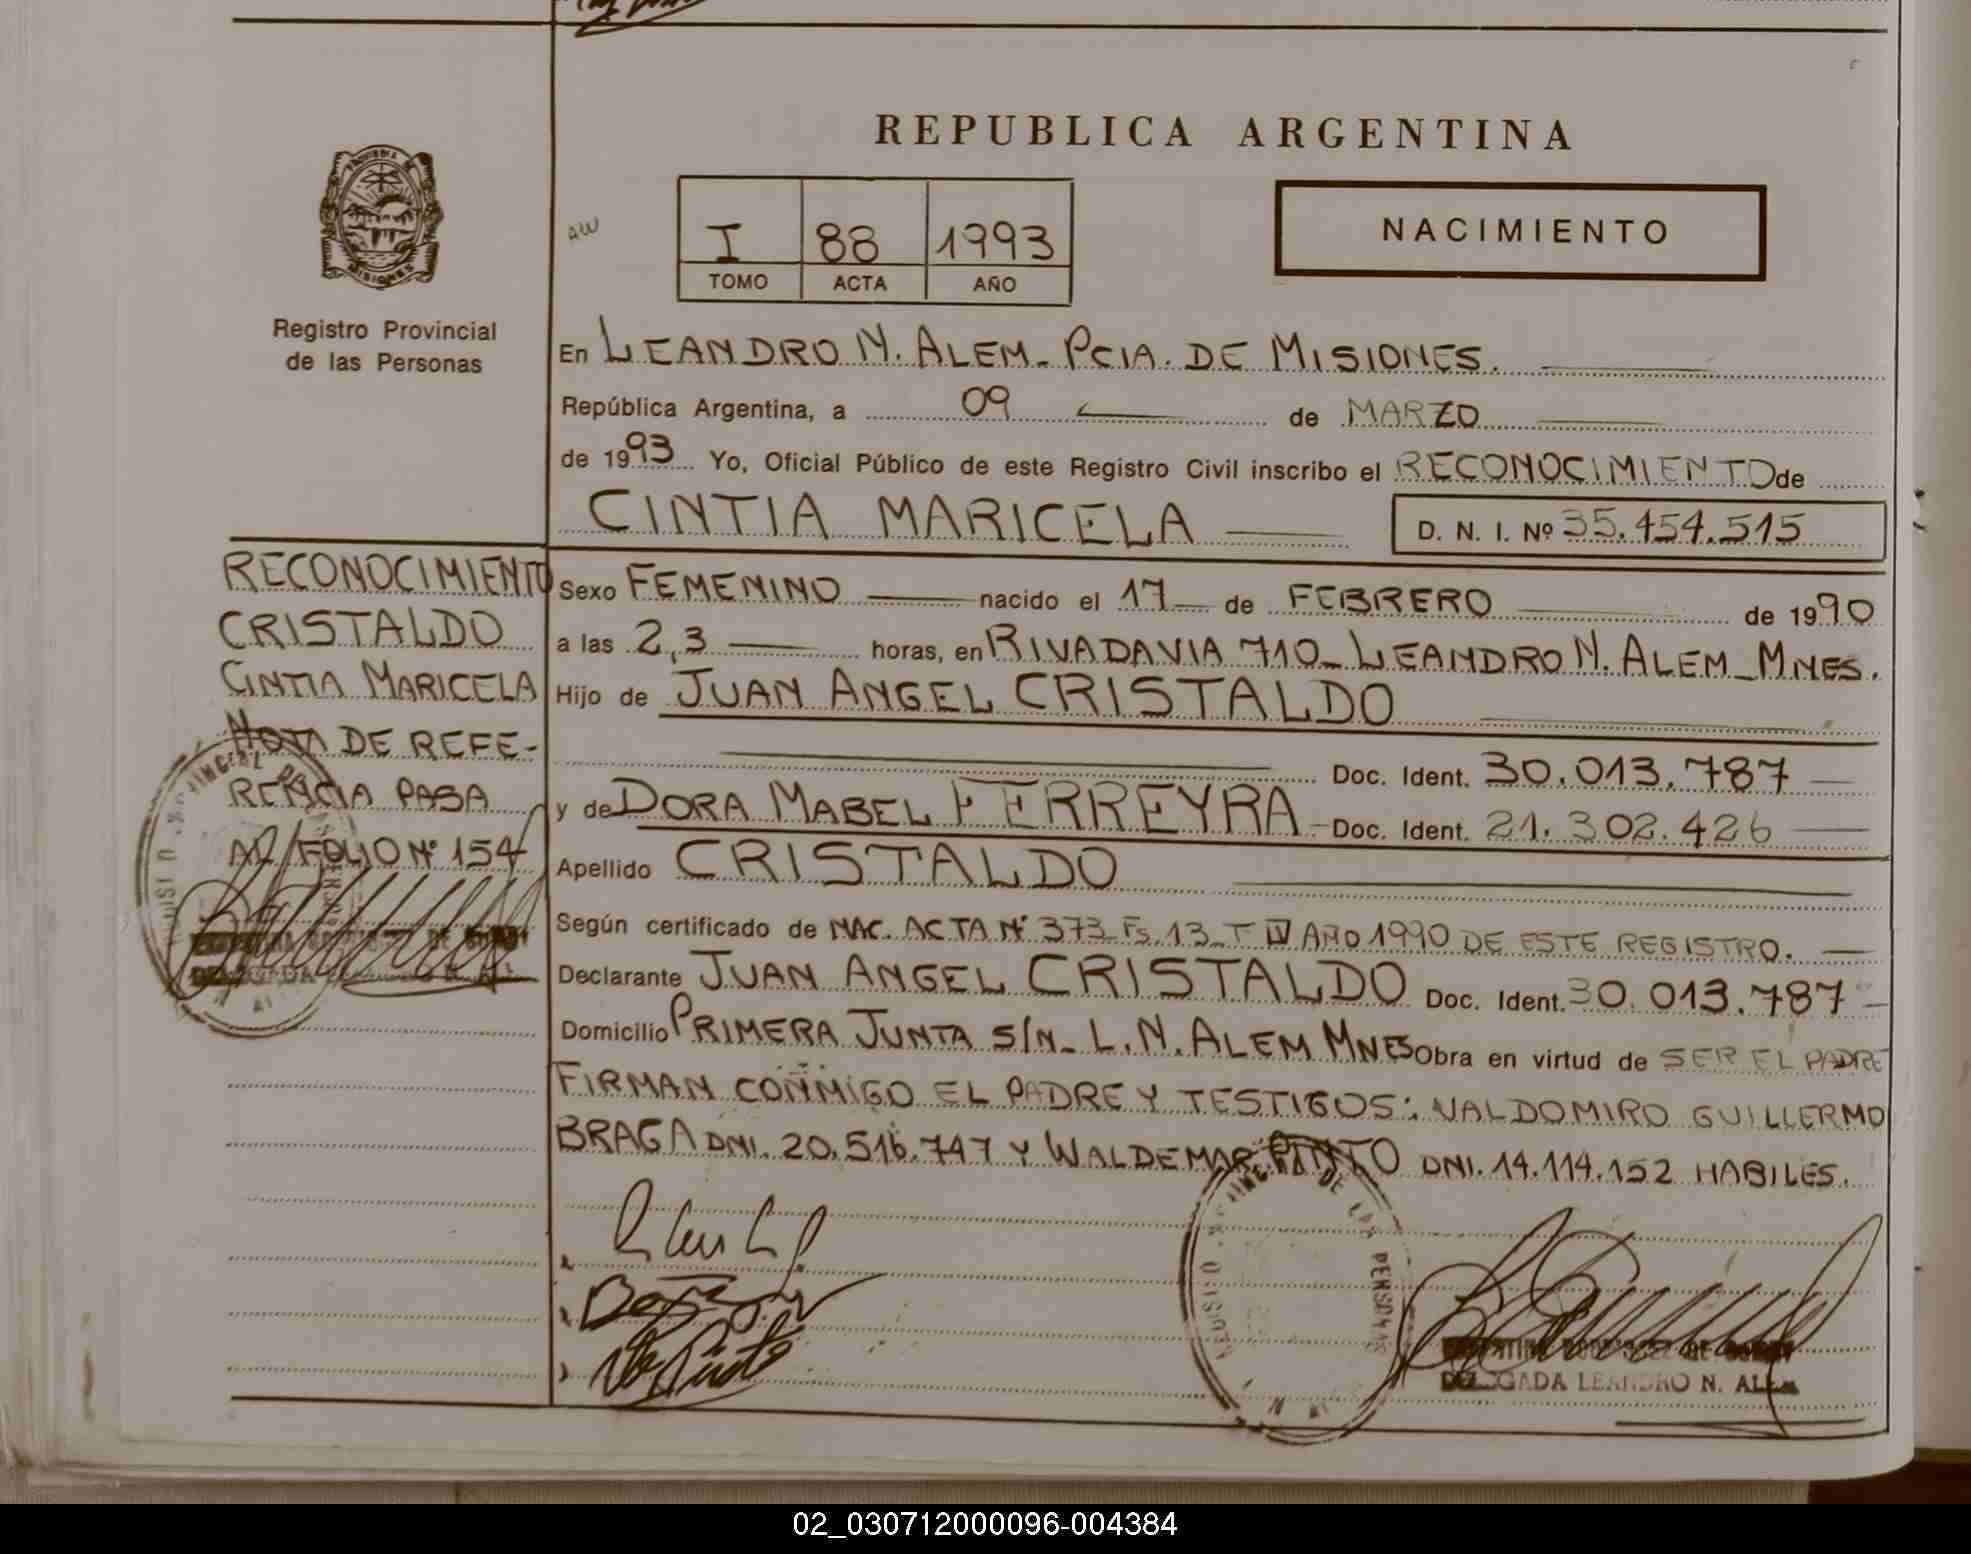 REPUBLICA ARGENTINA
PROVINCIA DE
MISIONES
Registro Provincial
de las Personas
I 88 1993
TOMO ACTA AÑO
NACIMIENTO
En LEANDRO N. ALEM - PCIA. DE MISIONES.
República Argentina, a 09 de MARZO
de 1993 Yo, Oficial Público de este Registro Civil inscribo el RECONOCIMIENTO de
CINTIA MARICELA D. N. I. Nº 35.454.515
RECONOCIMIENTO
CRISTALDO
CINTIA MARICELA
NOTA DE REFE-
RENCIA PASA
AL FOLIO Nº 154
Sexo FEMENINO nacido el 17 de FEBRERO de 1990
a las 2,3 horas, en RIVADAVIA 710 - LEANDRO N. ALEM - MNES.
Hijo de JUAN ANGEL CRISTALDO
Doc. Ident. 30.013.787
y de DORA MABEL FERREYRA - Doc. Ident. 21.302.426
Apellido CRISTALDO
Según certificado de NAC. ACTA Nº 373 - Fs. 13 - T IV AÑO 1990 DE ESTE REGISTRO.
Declarante JUAN ANGEL CRISTALDO Doc. Ident. 30.013.787
Domicilio PRIMERA JUNTA S/N - L. N. ALEM MNES Obra en virtud de SER EL PADRE
FIRMAN CONMIGO EL PADRE Y TESTIGOS: VALDOMIRO GUILLERMO
BRAGA DNI. 20.516.747 Y WALDEMAR PINTO DNI. 14.114.152 HABILES.
DE LAS PERSONAS
DELEGADA LEANDRO N. ALEM
02_030712000096-004384